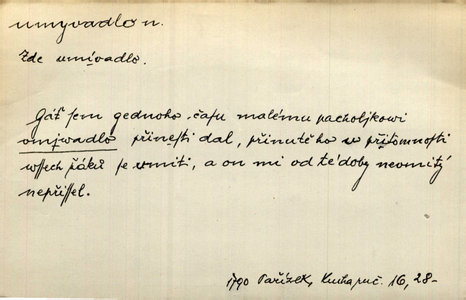 umyvadlo n.
Zde umívadlo.
Gáť sem gednoho času malému pacholjkowi
vmjwadlo přinésti dal, přinutě ho w přjtomnosti
wssech žáků se vmíti, a on mi od té doby neomitý
nepřissel.
1790 Pařízek, Kniha puč. 16, 28-